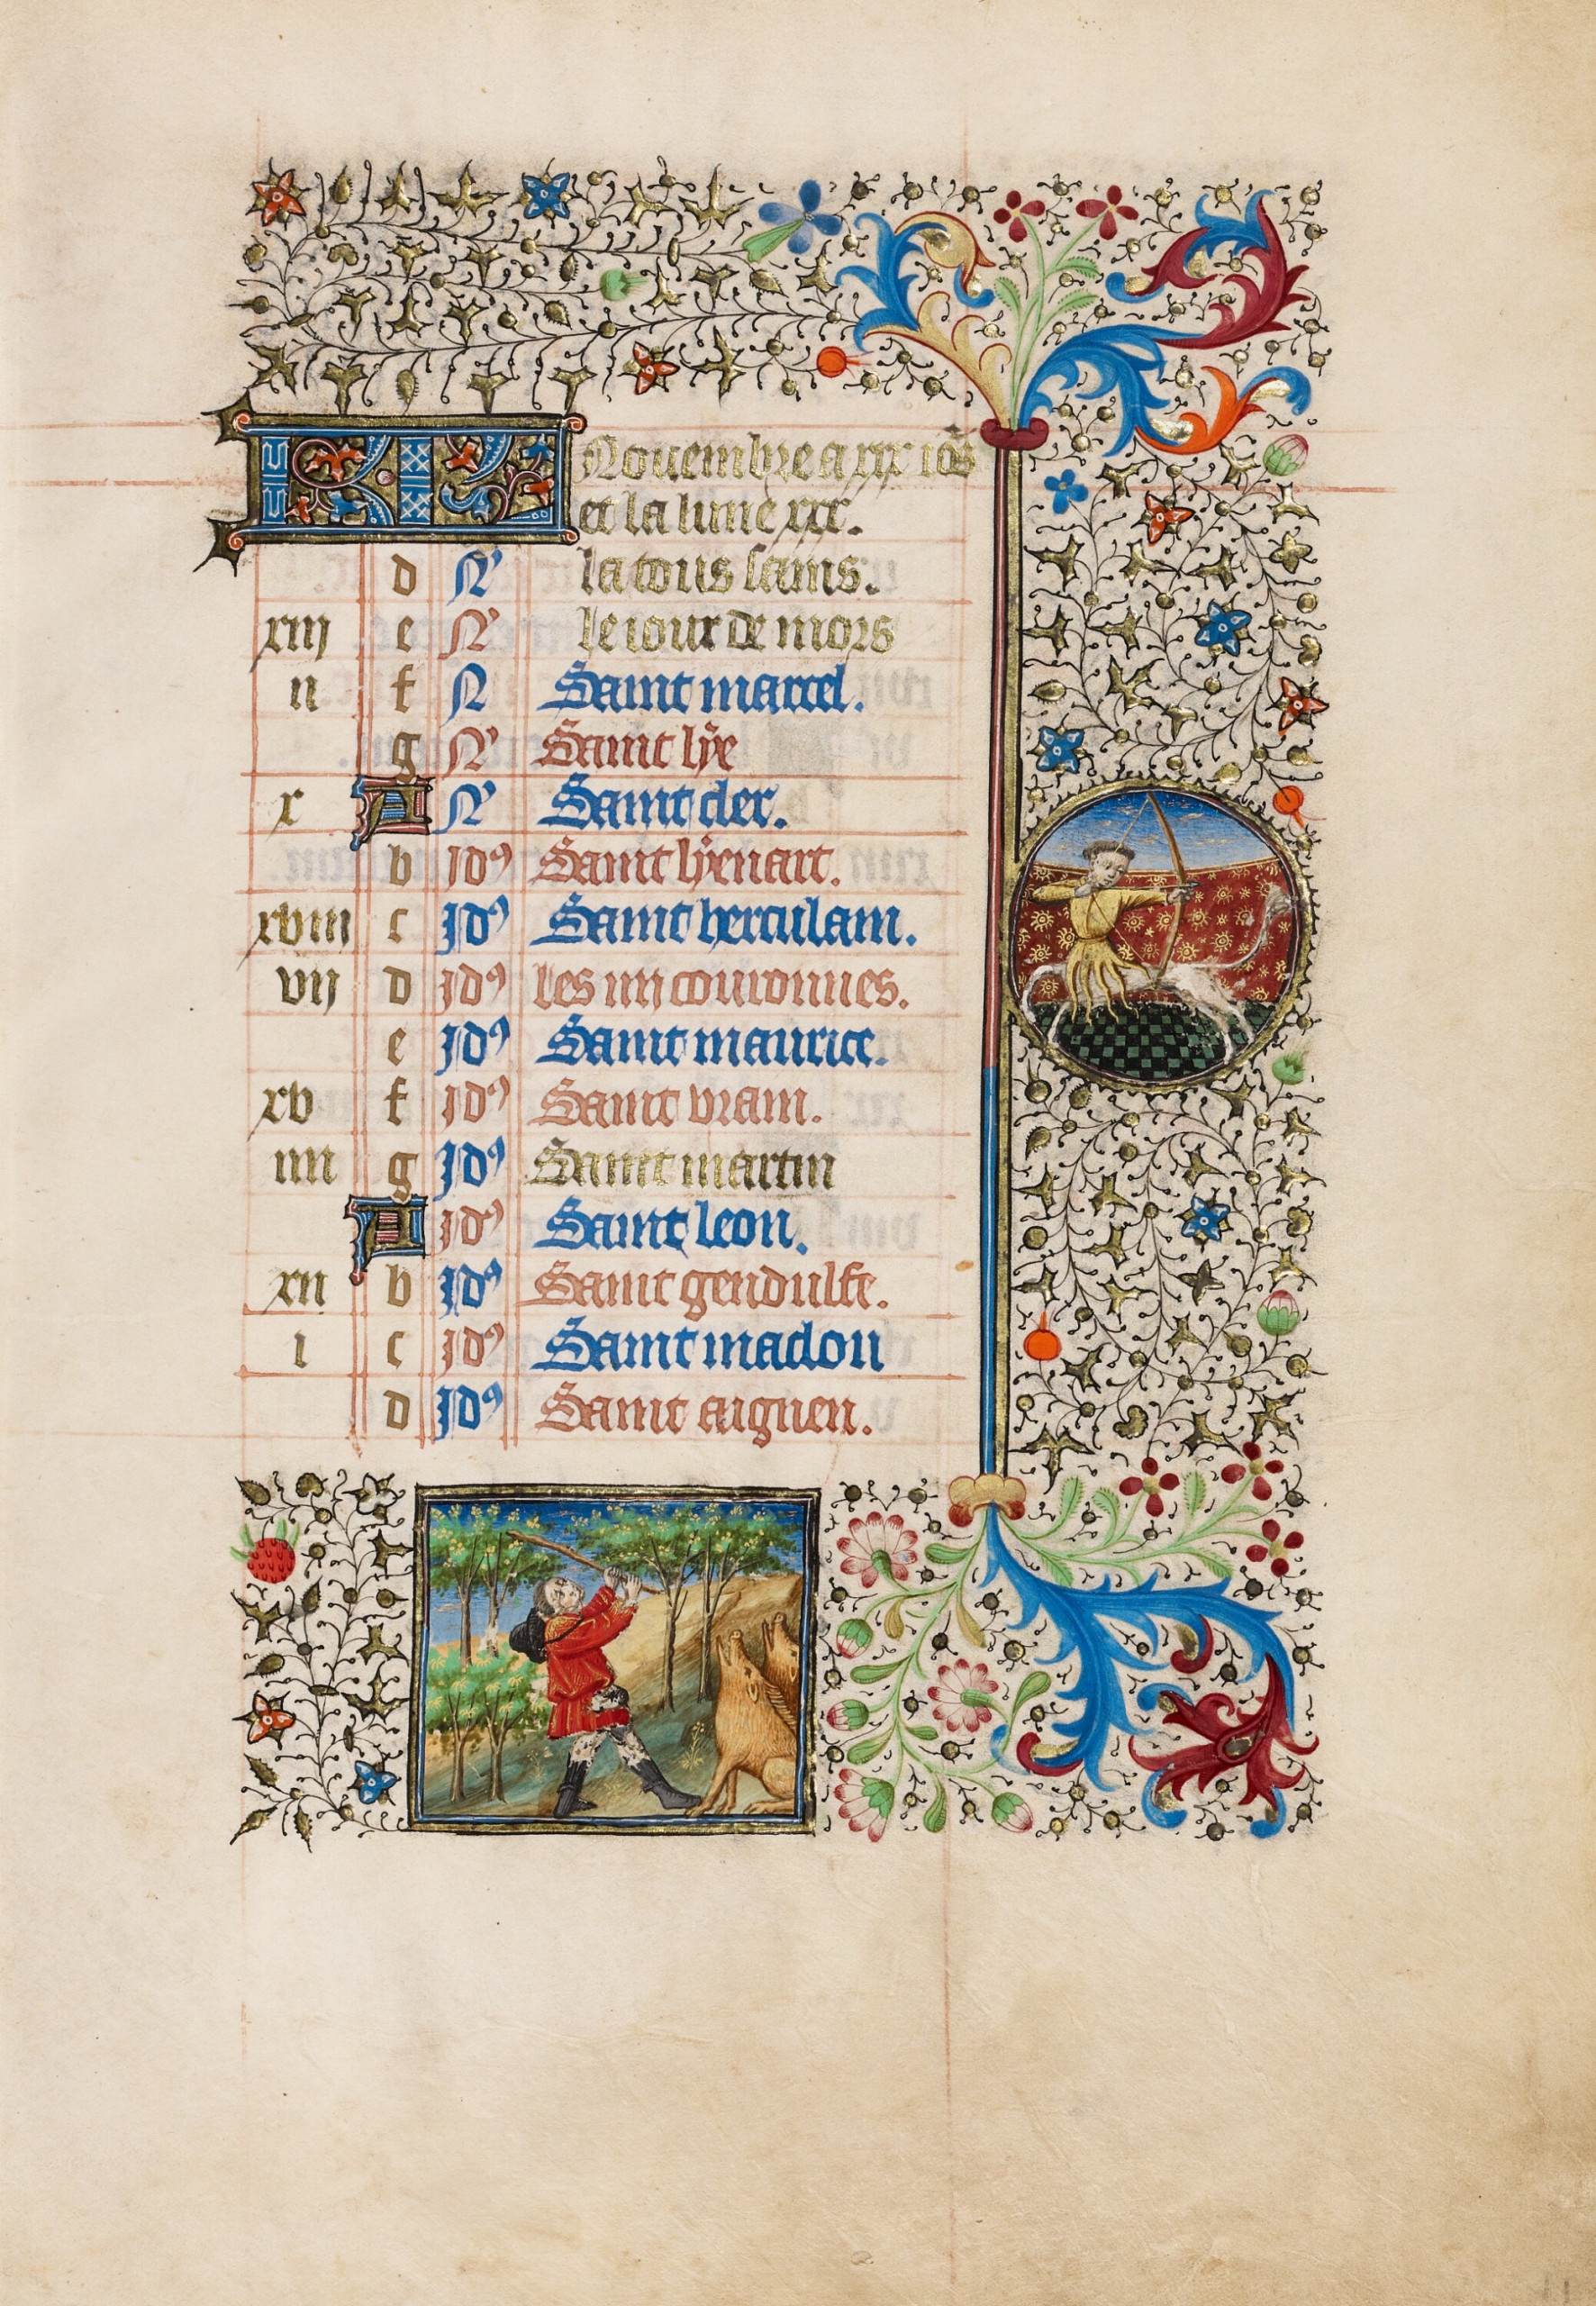 KL Nouembre a xxx iors
et la lune xxx.
d N' la tous sains.
xiij e N' le iour de mors
ii f N Saint marcel.
g N' Saint lÿe
x A N' Saint cler.
b Id⁹ Saint lÿenart.
xviii c Id⁹ Saint herculain.
vij d Id⁹ les iiij couronnes.
e Id⁹ Saint maurice.
xv f Id⁹ Saint vrain.
iiii g Id⁹ Saint martin
A Id⁹ Saint leon.
xii b Id⁹ Saint gendulfe.
i c Id⁹ Saint maclou
d Id⁹ Saint aignen.